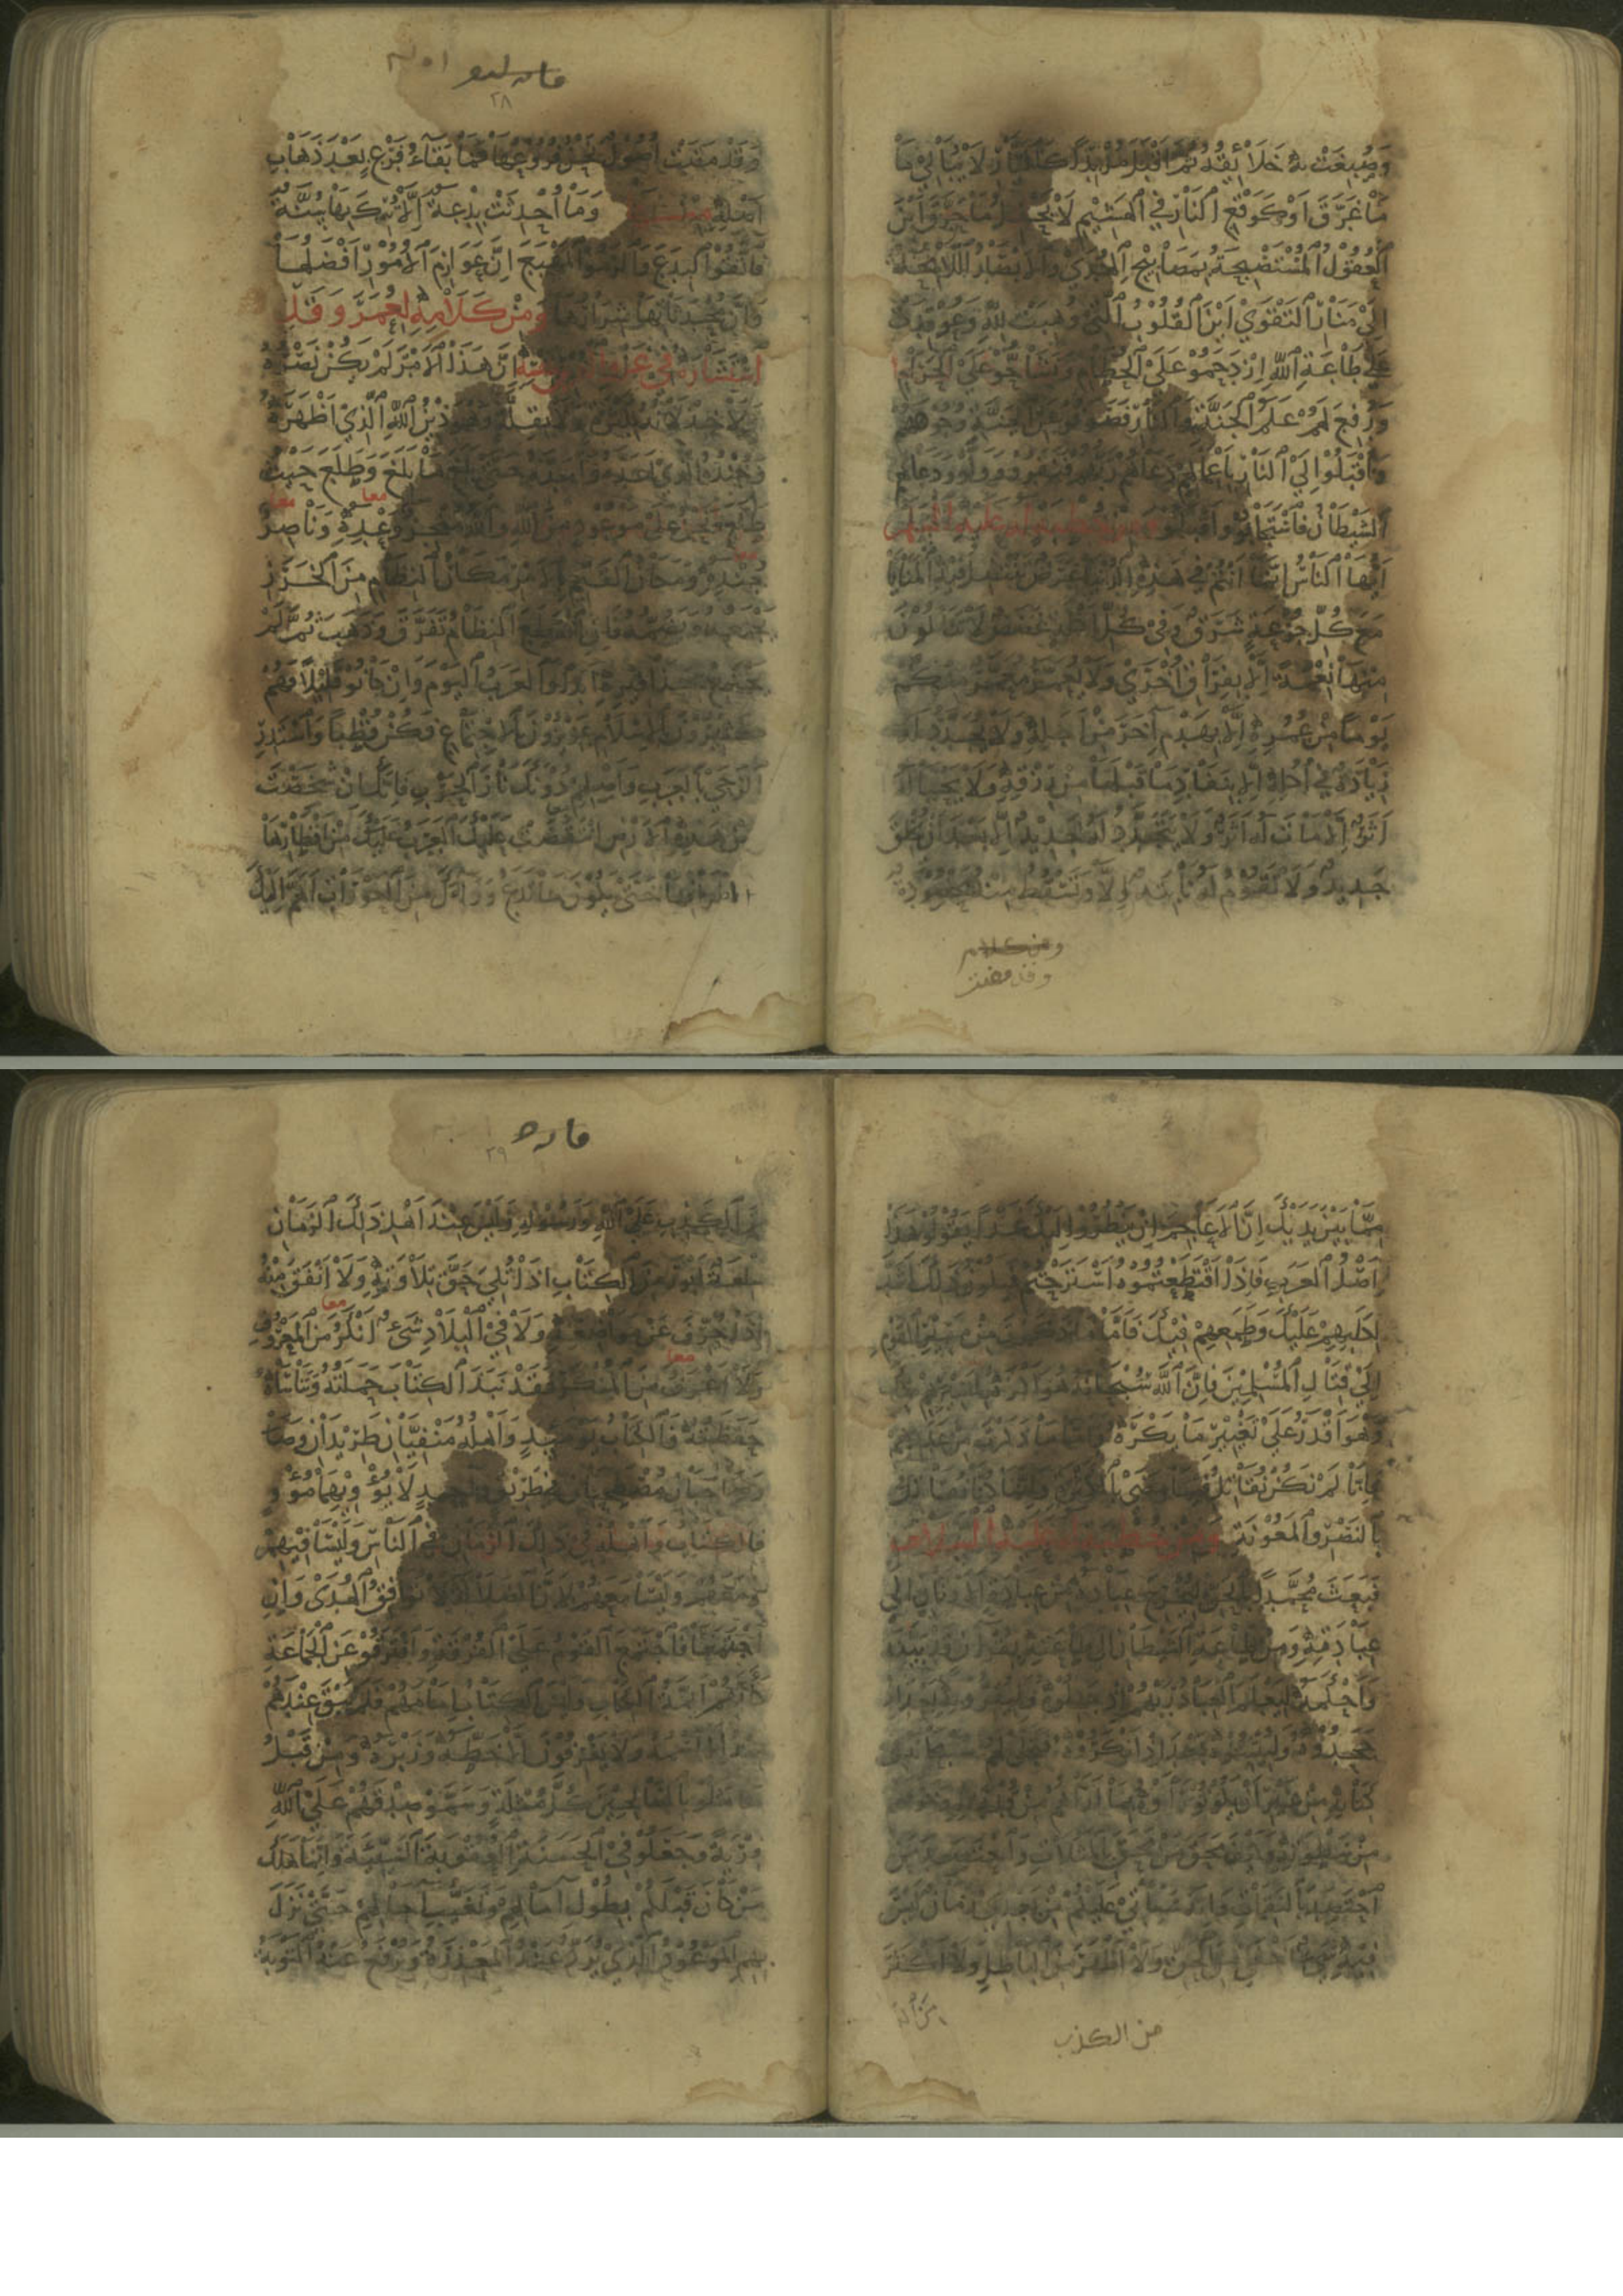 وَصُبِغَتْ بِهِ خَلَائِقُهُ ثُمَّ أَقْبَلَ مُزْبِدًا كَالتَّيَّارِ لَا يُبَالِي مَا
مَا غَرَّقَ أَوْ كَوَقْعِ النَّارِ فِي الْهَشِيمِ لَا يَحْفِلُ مَا حَرَّقَ أَيْنَ
الْعُقُولُ الْمُسْتَصْبِحَةُ بِمَصَابِيحِ الْهُدَى وَالْأَبْصَارُ اللَّامِحَةُ
إِلَى مَنَارِ التَّقْوَى أَيْنَ الْقُلُوبُ الَّتِي وُهِبَتْ لِلَّهِ وَعُوقِدَتْ
عَلَى طَاعَةِ اللَّهِ ازْدَحَمُوا عَلَى الْحُطَامِ وَتَشَاحُّوا عَلَى الْحَرَامِ
وَرُفِعَ لَهُمْ عَلَمُ الْجَنَّةِ وَالنَّارِ فَصَرَفُوا عَنِ الْجَنَّةِ وُجُوهَهُمْ
وَأَقْبَلُوا إِلَى النَّارِ بِأَعْمَالِهِمْ دَعَاهُمْ رَبُّهُمْ فَنَفَرُوا وَوَلَّوْا وَدَعَاهُمُ
الشَّيْطَانُ فَاسْتَجَابُوا وَأَقْبَلُوا ومن خطبة له عليه السلام
أَيُّهَا النَّاسُ إِنَّمَا أَنْتُمْ فِي هَذِهِ الدُّنْيَا غَرَضٌ تَنْتَضِلُ فِيهِ الْمَنَايَا
مَعَ كُلِّ جُرْعَةٍ شَرَقٌ وَفِي كُلِّ أَكْلَةٍ غَصَصٌ لَا تَنَالُونَ
مِنْهَا نِعْمَةً إِلَّا بِفِرَاقِ أُخْرَى وَلَا يُعَمَّرُ مُعَمَّرٌ مِنْكُمْ
يَوْمًا مِنْ عُمُرِهِ إِلَّا بِهَدْمِ آخَرَ مِنْ أَجَلِهِ وَلَا تُجَدَّدُ لَهُ
زِيَادَةٌ فِي أُكُلِهِ إِلَّا بِنَفَادِ مَا قَبْلَهَا مِنْ رِزْقِهِ وَلَا يَحْيَا لَهُ
أَثَرٌ إِلَّا مَاتَ لَهُ أَثَرٌ وَلَا يَتَجَدَّدُ لَهُ جَدِيدٌ إِلَّا بَعْدَ أَنْ يَخْلَقَ
جَدِيدٌ وَلَا تَقُومُ لَهُ نَابِتَةٌ إِلَّا وَتَسْقُطُ مِنْهُ مَحْصُودَةٌ
ومن كلام
وقد مضت
٢٨
وَقَدْ مَضَتْ أُصُولٌ نَحْنُ فُرُوعُهَا فَمَا بَقَاءُ فَرْعٍ بَعْدَ ذَهَابِ
أَصْلِهِ منها وَمَا أُحْدِثَتْ بِدْعَةٌ إِلَّا تُرِكَ بِهَا سُنَّةٌ
فَاتَّقُوا الْبِدَعَ وَالْزَمُوا الْمَهْيَعَ إِنَّ عَوَازِمَ الْأُمُورِ أَفْضَلُهَا
وَإِنَّ مُحْدَثَاتِهَا شِرَارُهَا وَمِنْ كَلَامِهِ لِعُمَرَ وَقَدِ
اسْتَشَارَهُ فِي غزو الفرس إِنَّ هَذَا الْأَمْرَ لَمْ يَكُنْ نَصْرُهُ
وَلَا خِذْلَانُهُ بِكَثْرَةٍ وَلَا بِقِلَّةٍ وَهُوَ دِينُ اللَّهِ الَّذِي أَظْهَرَهُ
وَجُنْدُهُ الَّذِي أَعَدَّهُ وَأَمَدَّهُ حَتَّى بَلَغَ مَا بَلَغَ وَطَلَعَ حَيْثُ
طَلَعَ وَنَحْنُ عَلَى مَوْعُودٍ مِنَ اللَّهِ وَاللَّهُ مُنْجِزٌ وَعْدَهُ وَنَاصِرٌ
جُنْدَهُ وَمَكَانُ الْقَيِّمِ بِالْأَمْرِ مَكَانُ النِّظَامِ مِنَ الْخَرَزِ
يَجْمَعُهُ وَيَضُمُّهُ فَإِنِ انْقَطَعَ النِّظَامُ تَفَرَّقَ وَذَهَبَ ثُمَّ لَمْ
يَجْتَمِعْ بِحَذَافِيرِهِ أَبَدًا وَالْعَرَبُ الْيَوْمَ وَإِنْ كَانُوا قَلِيلًا فَهُمْ
كَثِيرُونَ بِالْإِسْلَامِ عَزِيزُونَ بِالِاجْتِمَاعِ فَكُنْ قُطْبًا وَاسْتَدِرِ
الرَّحَى بِالْعَرَبِ وَأَصْلِهِمْ دُونَكَ نَارَ الْحَرْبِ فَإِنَّكَ إِنْ شَخَصْتَ
مِنْ هَذِهِ الْأَرْضِ انْتَقَضَتْ عَلَيْكَ الْعَرَبُ مِنْ أَقْطَارِهَا
وَأَطْرَافِهَا حَتَّى يَكُونَ مَا تَدَعُ وَرَاءَكَ مِنَ الْعَوْرَاتِ أَهَمَّ إِلَيْكَ
مِمَّا بَيْنَ يَدَيْكَ إِنَّ الْأَعَاجِمَ إِنْ يَنْظُرُوا إِلَيْكَ غَدًا يَقُولُوا هَذَا
أَصْلُ الْعَرَبِ فَإِذَا اقْتَطَعْتُمُوهُ اسْتَرَحْتُمْ فَيَكُونُ ذَلِكَ أَشَدَّ
لِكَلَبِهِمْ عَلَيْكَ وَطَمَعِهِمْ فِيكَ فَأَمَّا مَا ذَكَرْتَ مِنْ مَسِيرِ الْقَوْمِ
إِلَى قِتَالِ الْمُسْلِمِينَ فَإِنَّ اللَّهَ سُبْحَانَهُ هُوَ أَكْرَهُ لِمَسِيرِهِمْ مِنْكَ
وَهُوَ أَقْدَرُ عَلَى تَغْيِيرِ مَا يَكْرَهُ وَأَمَّا مَا ذَكَرْتَ مِنْ عَدَدِهِمْ
فَإِنَّا لَمْ نَكُنْ نُقَاتِلُ فِيمَا مَضَى بِالْكَثْرَةِ وَإِنَّمَا كُنَّا نُقَاتِلُ
بِالنَّصْرِ وَالْمَعُونَةِ ومن خطبة له عليه السلام
فَبَعَثَ مُحَمَّدًا بِالْحَقِّ لِيُخْرِجَ عِبَادَهُ مِنْ عِبَادَةِ الْأَوْثَانِ إِلَى
عِبَادَتِهِ وَمِنْ طَاعَةِ الشَّيْطَانِ إِلَى طَاعَتِهِ بِقُرْآنٍ قَدْ بَيَّنَهُ
وَأَحْكَمَهُ لِيَعْلَمَ الْعِبَادُ رَبَّهُمْ إِذْ جَهِلُوهُ وَلِيُقِرُّوا بِهِ بَعْدَ إِذْ
جَحَدُوهُ وَلِيُثْبِتُوهُ بَعْدَ إِذْ أَنْكَرُوهُ فَتَجَلَّى لَهُمْ سُبْحَانَهُ فِي
كِتَابِهِ مِنْ غَيْرِ أَنْ يَكُونُوا رَأَوْهُ بِمَا أَرَاهُمْ مِنْ قُدْرَتِهِ وَخَوَّفَهُمْ
مِنْ سَطْوَتِهِ وَكَيْفَ مَحَقَ مَنْ مَحَقَ بِالْمَثُلَاتِ وَاحْتَصَدَ مَنِ
احْتَصَدَ بِالنَّقِمَاتِ وَإِنَّهُ سَيَأْتِي عَلَيْكُمْ مِنْ بَعْدِي زَمَانٌ لَيْسَ
فِيهِ شَيْءٌ أَخْفَى مِنَ الْحَقِّ وَلَا أَظْهَرَ مِنَ الْبَاطِلِ وَلَا أَكْثَرَ
من الكذب
٢٩
مِنَ الْكَذِبِ عَلَى اللَّهِ وَرَسُولِهِ وَلَيْسَ عِنْدَ أَهْلِ ذَلِكَ الزَّمَانِ
سِلْعَةٌ أَبْوَرُ مِنَ الْكِتَابِ إِذَا تُلِيَ حَقَّ تِلَاوَتِهِ وَلَا أَنْفَقُ مِنْهُ
إِذَا حُرِّفَ عَنْ مَوَاضِعِهِ وَلَا فِي الْبِلَادِ شَيْءٌ أَنْكَرُ مِنَ الْمَعْرُوفِ
وَلَا أَعْرَفُ مِنَ الْمُنْكَرِ فَقَدْ نَبَذَ الْكِتَابَ حَمَلَتُهُ وَتَنَاسَاهُ
حَفَظَتُهُ فَالْكِتَابُ يَوْمَئِذٍ وَأَهْلُهُ مَنْفِيَّانِ طَرِيدَانِ وَصَا
حِبَانِ مُصْطَحِبَانِ فِي طَرِيقٍ وَاحِدٍ لَا يُؤْوِيهِمَا مُؤْوٍ
فَالْكِتَابُ وَأَهْلُهُ فِي ذَلِكَ الزَّمَانِ فِي النَّاسِ وَلَيْسَا فِيهِمْ
وَمَعَهُمْ وَلَيْسَا مَعَهُمْ لِأَنَّ الضَّلَالَةَ لَا تُوَافِقُ الْهُدَى وَإِنِ
اجْتَمَعَا فَاجْتَمَعَ الْقَوْمُ عَلَى الْفُرْقَةِ وَافْتَرَقُوا عَنِ الْجَمَاعَةِ
كَأَنَّهُمْ أَئِمَّةُ الْكِتَابِ وَلَيْسَ الْكِتَابُ إِمَامَهُمْ فَلَمْ يَبْقَ عِنْدَهُمْ
مِنْهُ إِلَّا اسْمُهُ وَلَا يَعْرِفُونَ إِلَّا خَطَّهُ وَزَبْرَهُ وَمِنْ قَبْلُ
مَا مَثَّلُوا بِالصَّالِحِينَ كُلَّ مُثْلَةٍ وَسَمَّوْا صِدْقَهُمْ عَلَى اللَّهِ
فِرْيَةً وَجَعَلُوا فِي الْحَسَنَةِ الْعُقُوبَةَ السَّيِّئَةَ وَإِنَّمَا هَلَكَ
مَنْ كَانَ قَبْلَكُمْ بِطُولِ آمَالِهِمْ وَتَغَيُّبِ آجَالِهِمْ حَتَّى نَزَلَ
بِهِمُ الْمَوْعُودُ الَّذِي تُرَدُّ عَنْهُ الْمَعْذِرَةُ وَتُرْفَعُ عَنْهُ التَّوْبَةُ